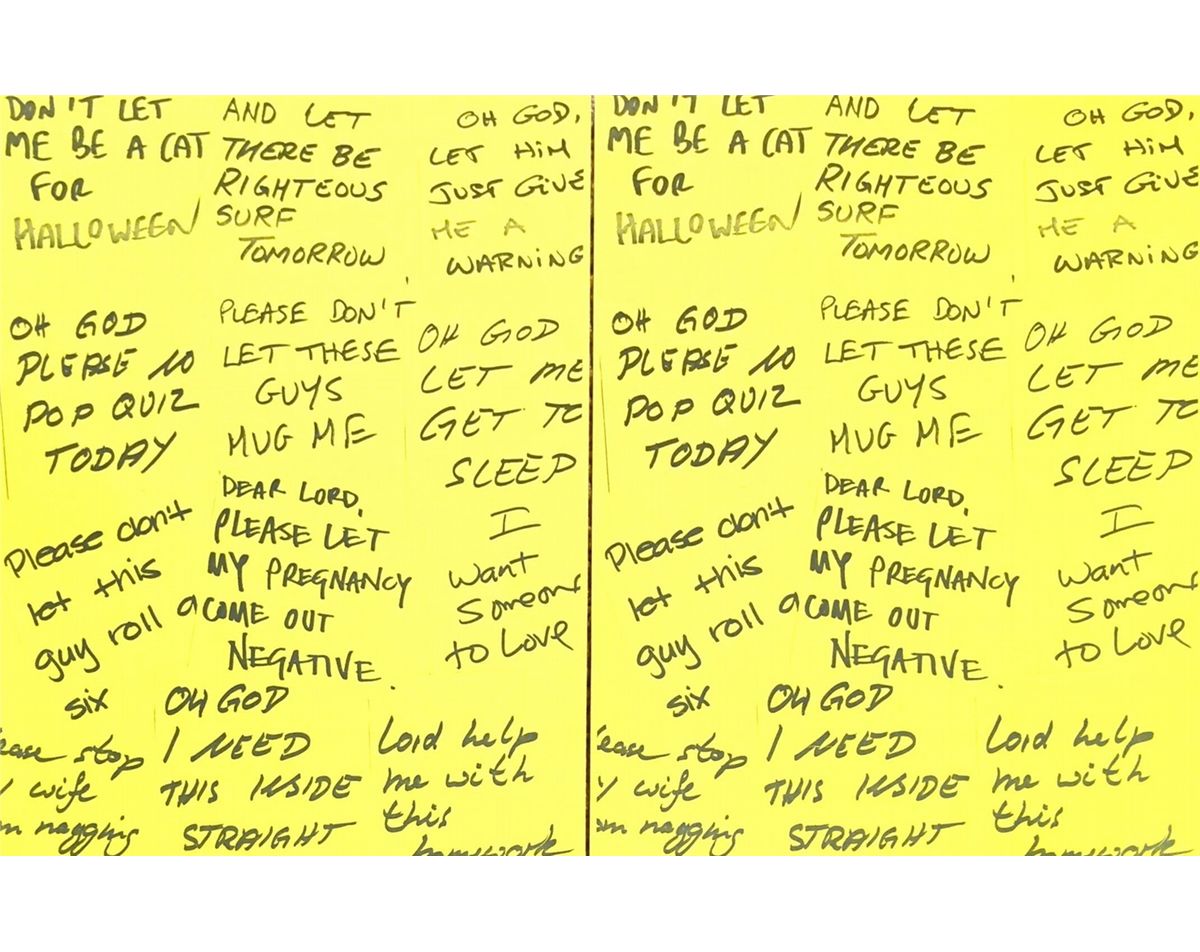 DON'T LET
ME BE A CAT
FOR
HALLOWEEN
AND LET
THERE BE
RIGHTEOUS
SURF
TOMORROW
OH GOD,
LET HIM
JUST GIVE
ME A
WARNING
OH GOD
PLEASE NO
POP QUIZ
TODAY
PLEASE DON'T
LET THESE
GUYS
MUG ME
OH GOD
LET ME
GET TO
SLEEP
Please don't
let this
guy roll a
six
DEAR LORD,
PLEASE LET
MY PREGNANCY
COME OUT
NEGATIVE.
I
want
Someone
to Love
ease stop
wife
nagging
OH GOD
I NEED
THIS INSIDE
STRAIGHT
Lord help
me with
this
homework
DON'T LET
ME BE A CAT
FOR
HALLOWEEN
AND LET
THERE BE
RIGHTEOUS
SURF
TOMORROW
OH GOD,
LET HIM
JUST GIVE
ME A
WARNING
OH GOD
PLEASE NO
POP QUIZ
TODAY
PLEASE DON'T
LET THESE
GUYS
MUG ME
OH GOD
LET ME
GET TO
SLEEP
Please don't
let this
guy roll a
six
DEAR LORD,
PLEASE LET
MY PREGNANCY
COME OUT
NEGATIVE.
I
want
Someone
to Love
ease stop
y wife
nagging
OH GOD
I NEED
THIS INSIDE
STRAIGHT
Lord help
me with
this
homework